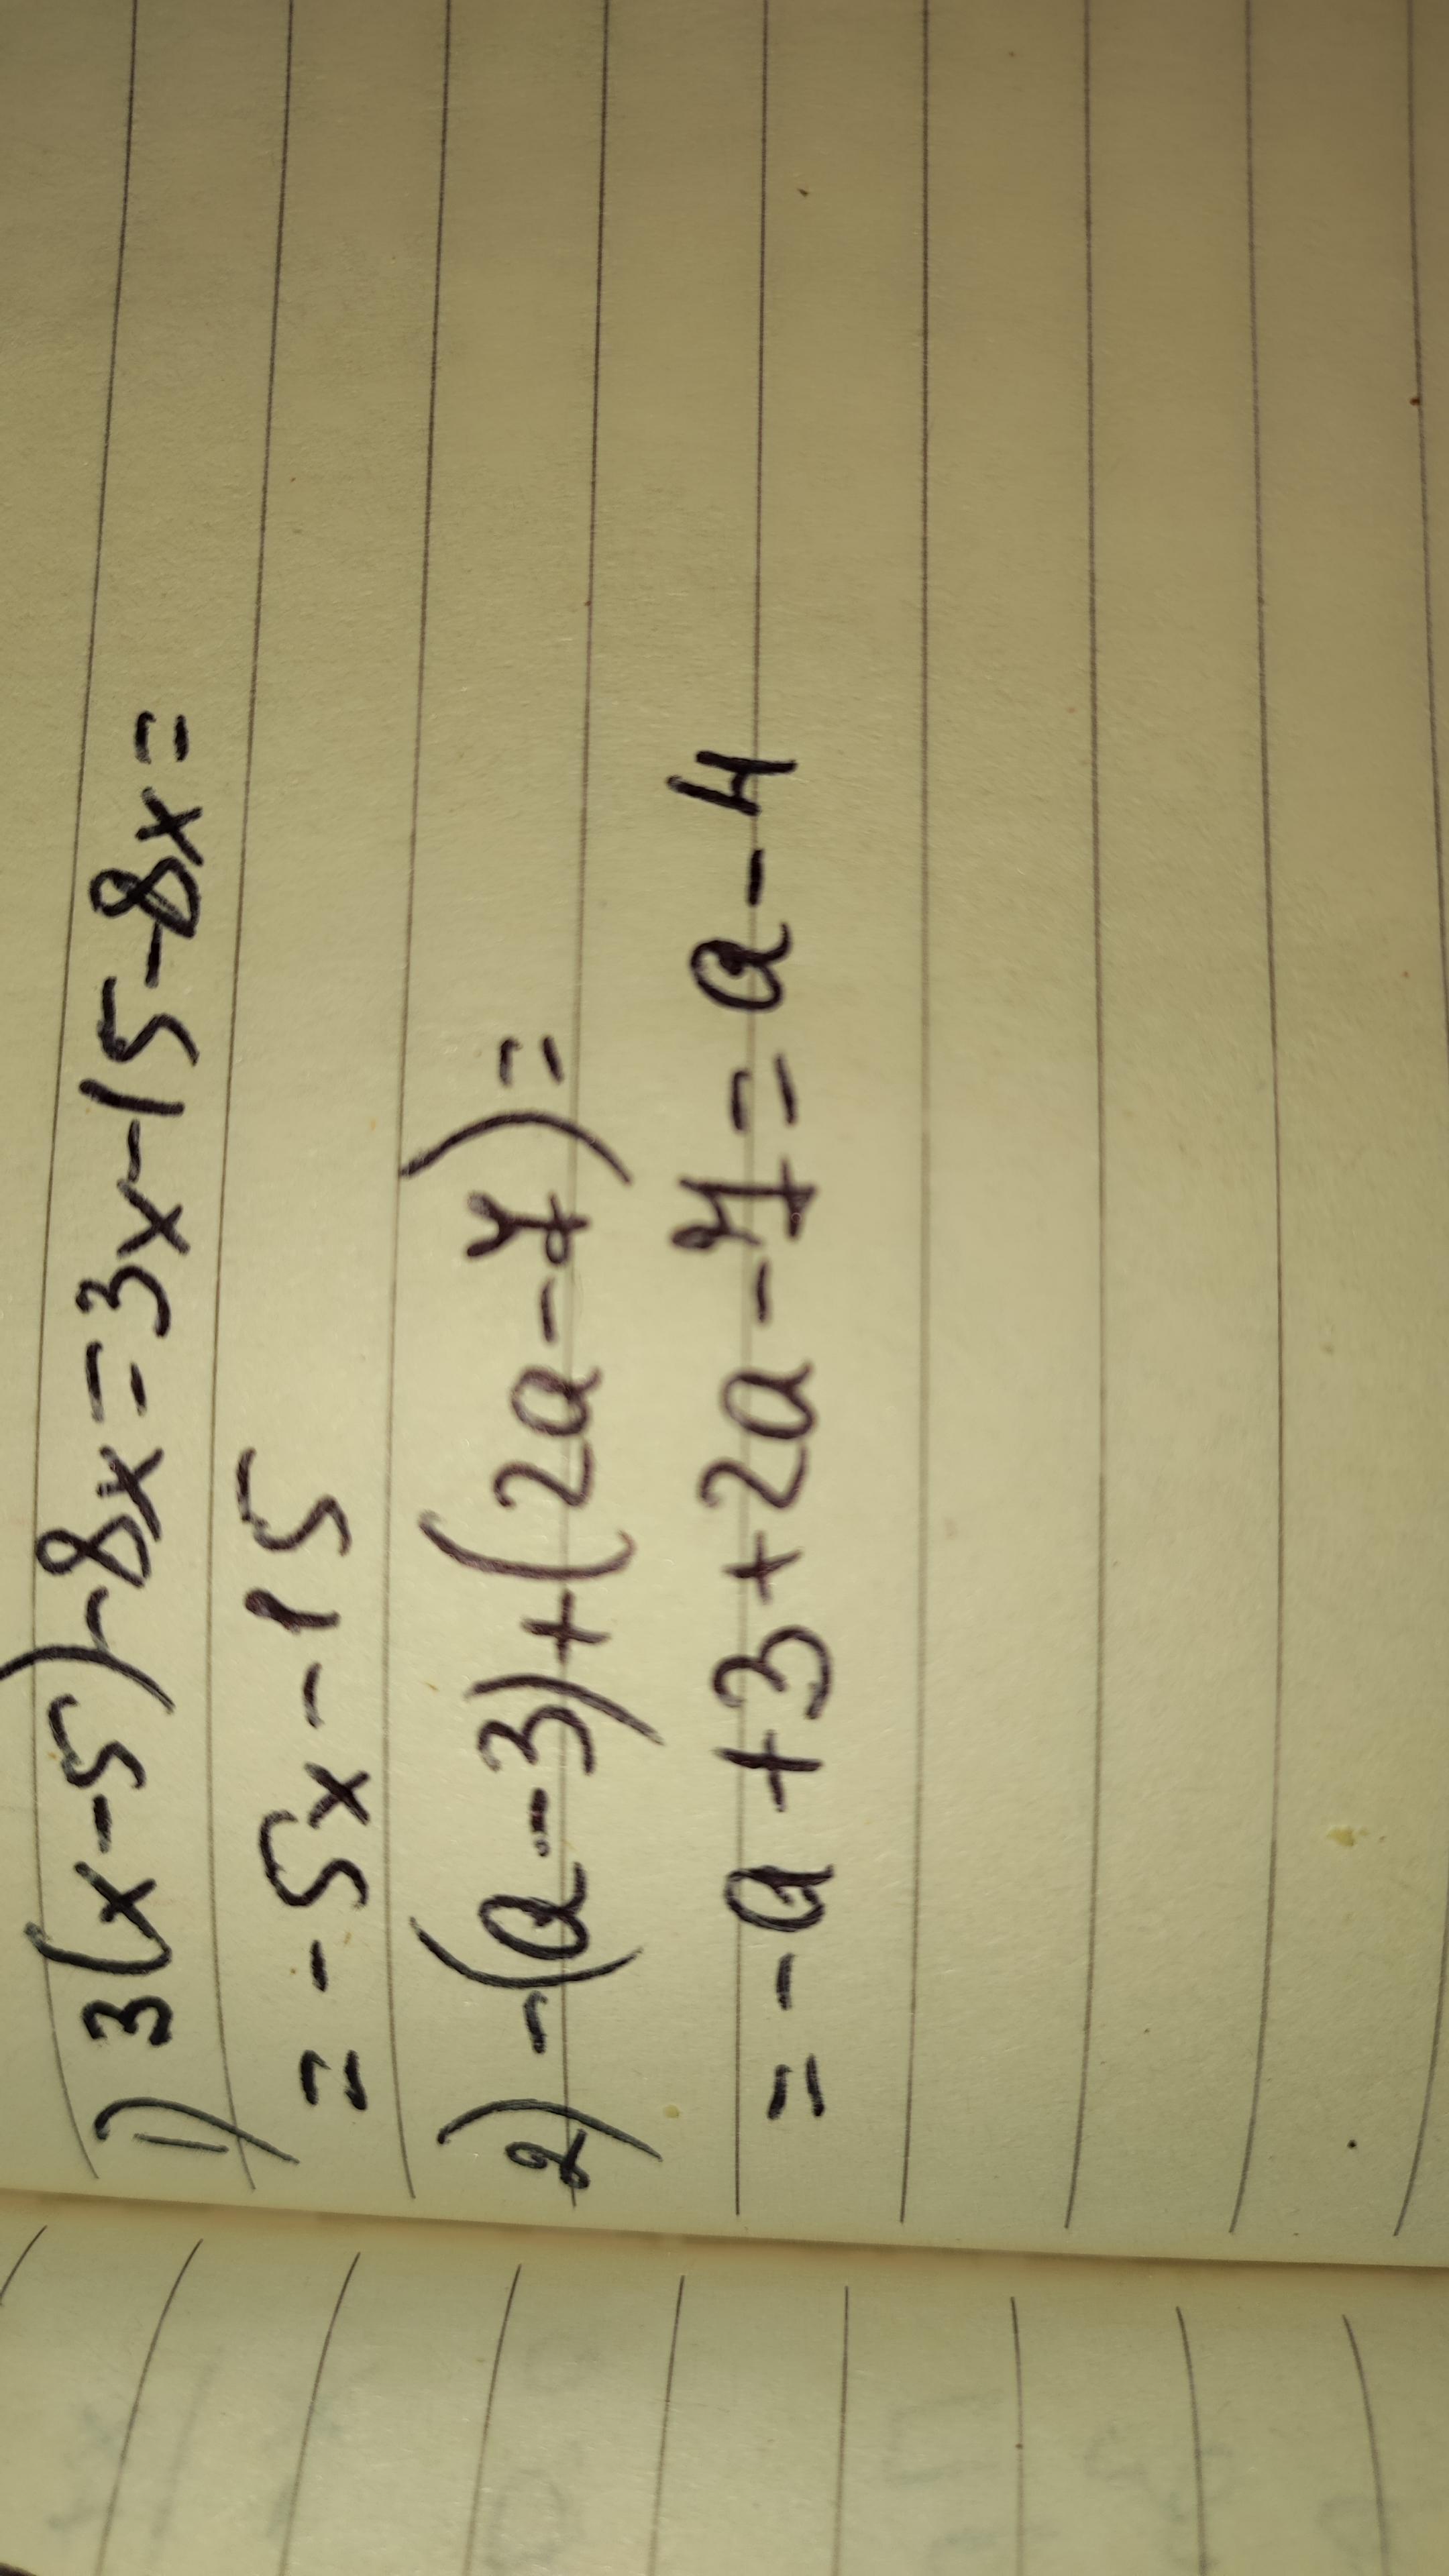 1) 3(x-5)-8x=3x-15-8x=
=-5x-15
2) -(a-3)+(2a-7)=
=-a+3+2a-7=a-4